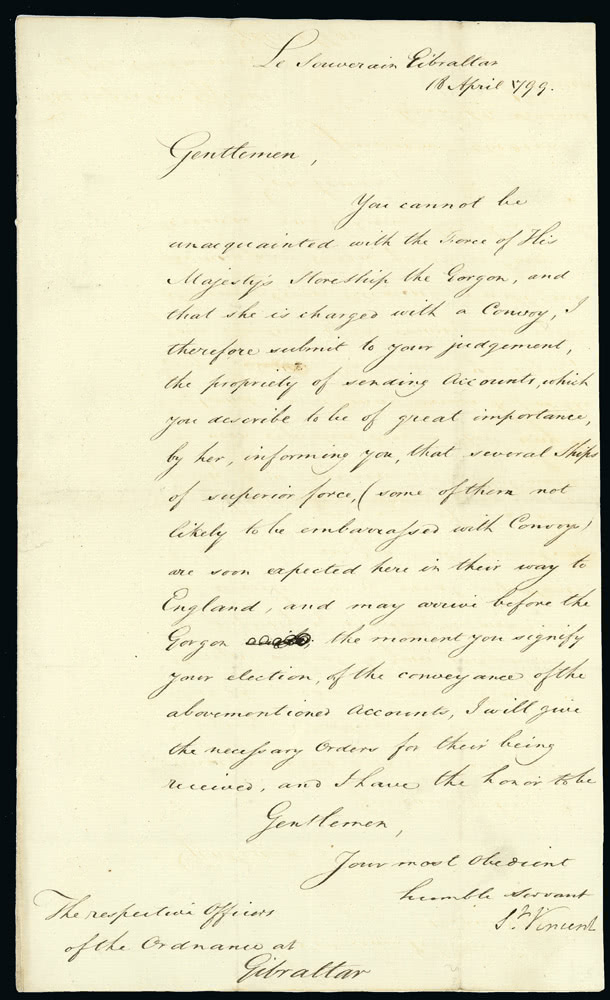 Le Souverain Gibraltar
18 April 1799.
Gentlemen,
You cannot be
unacquainted with the Force of His
Majesty's Storeship the Gorgon, and
that she is charged with a Convoy, I
therefore submit to your judgement,
the propriety of sending Accounts, which
you describe to be of great importance,
by her, informing you, that several Ships
of superior force, (some of them not
likely to be embarrassed with Convoys)
are soon expected here in their way to
England, and may arrive before the
Gorgon the moment you signify
your election, of the conveyance of the
abovementioned Accounts, I will give
the necessary Orders for their being
received, and I have the honor to be
Gentlemen,
Your most Obedient
humble Servant
St. Vincent
The respective Officers
of the Ordnance at
Gibraltar